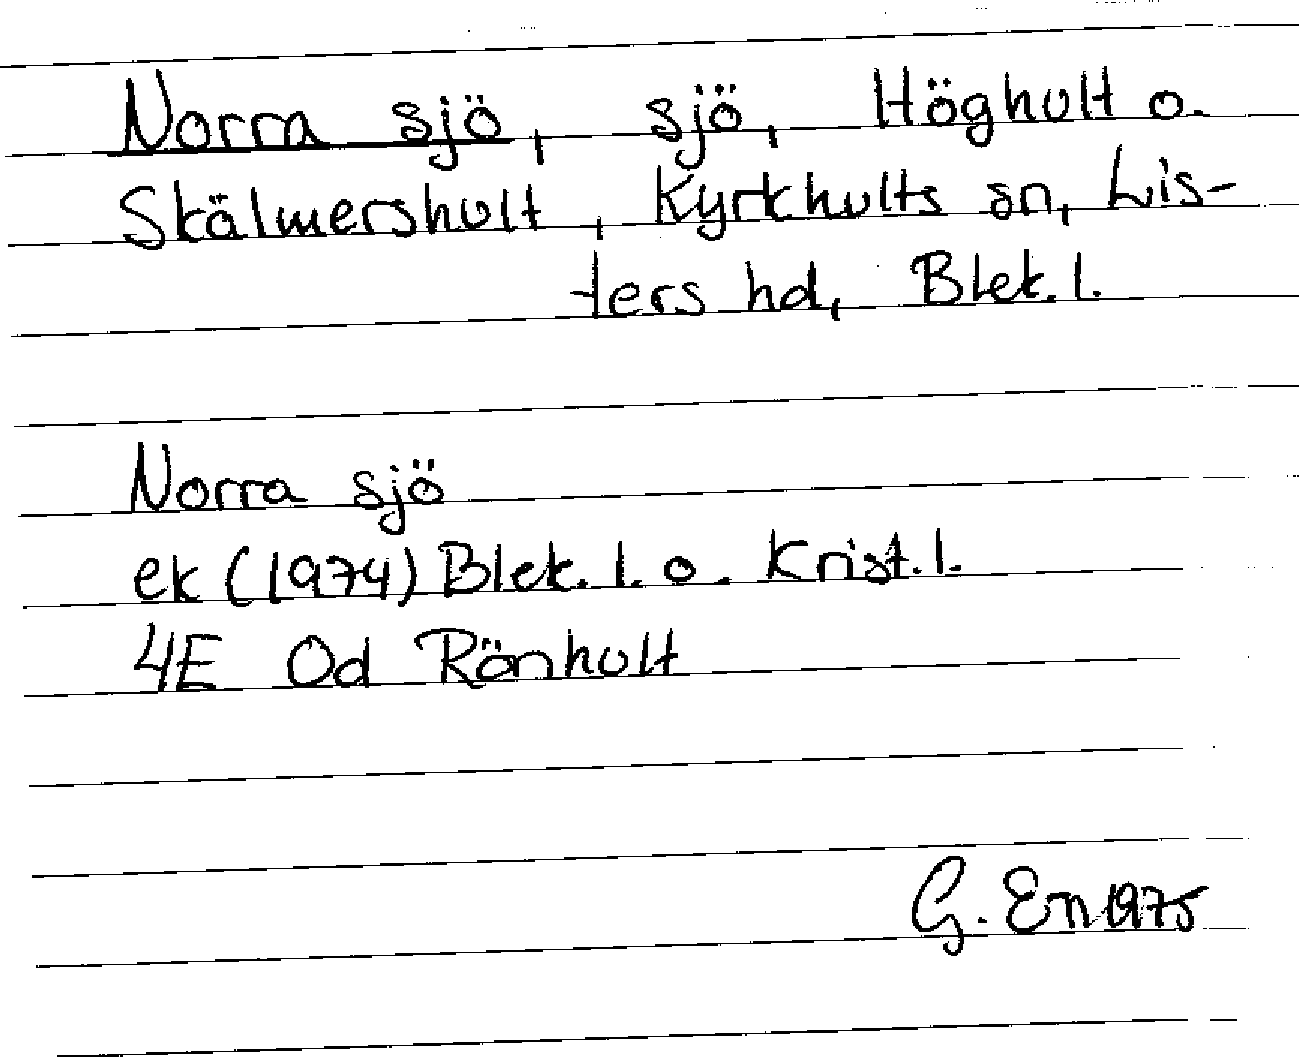 Norra sjö, sjö, Höghult o.
Skälmershult, Kyrkhults sn, Lis-
ters hd, Blek. l.
Norra sjö
ek (1974) Blek. l. o. Krist. l.
4E 0d Rönhult
G. En 1975